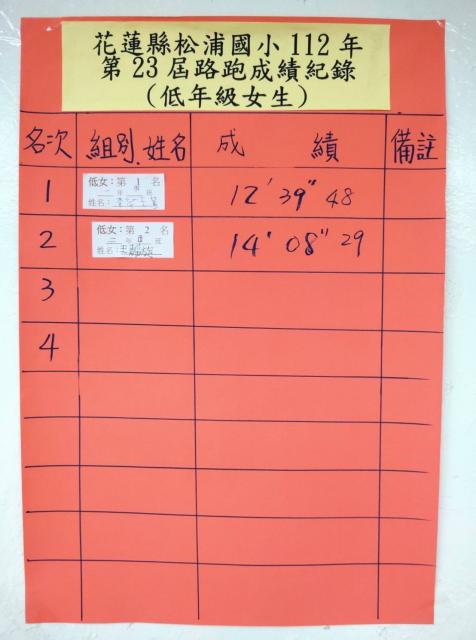 花蓮縣松浦國小112年
第23屆路跑成績紀錄
(低年級女生)
名次 組別.姓名 成績 備註
1 低女：第 1 名
二 年 班
姓名：
12'39"48
2 低女：第 2 名
二 年 班
姓名：
14'08"29
3
4